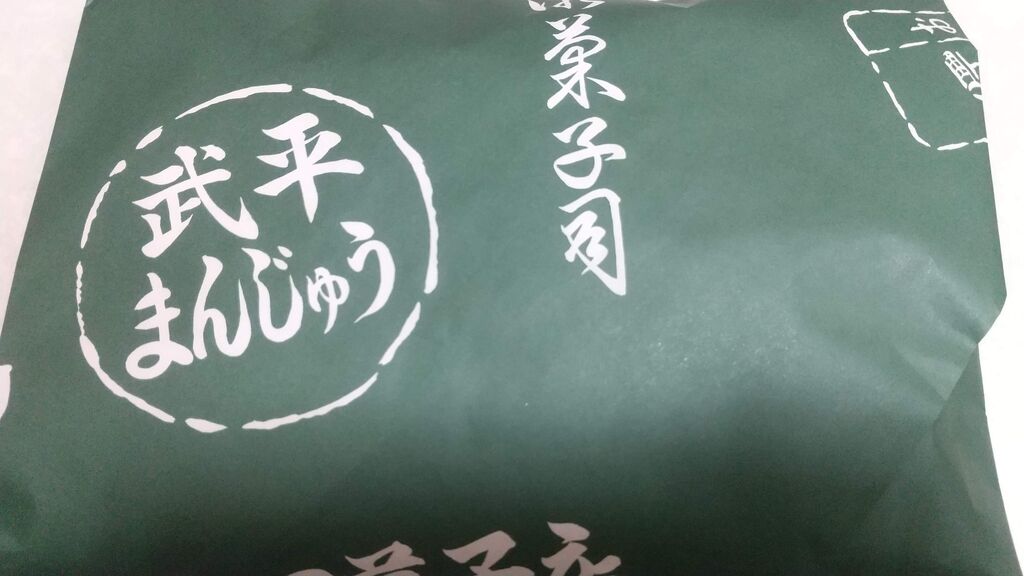 武平
まんじゅう
菓子司
お